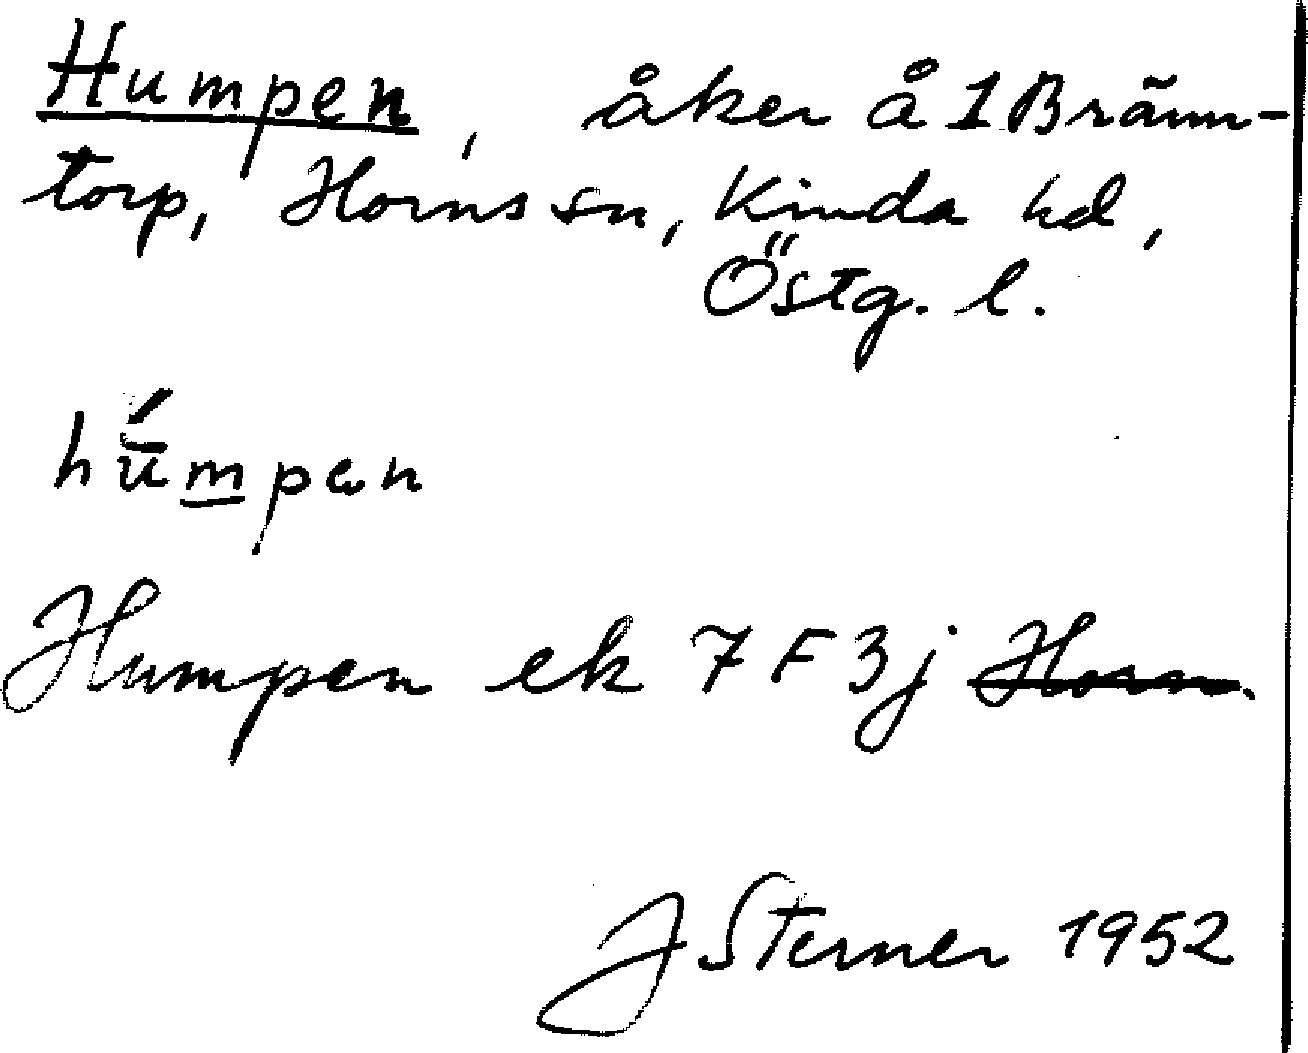 Humpen, åker å 1 Bränn-
torp, Horns sn, Kinda hd,
Östg. l.
hū́mpen
Humpen ek 7F3j Horn.
J Sterner 1952